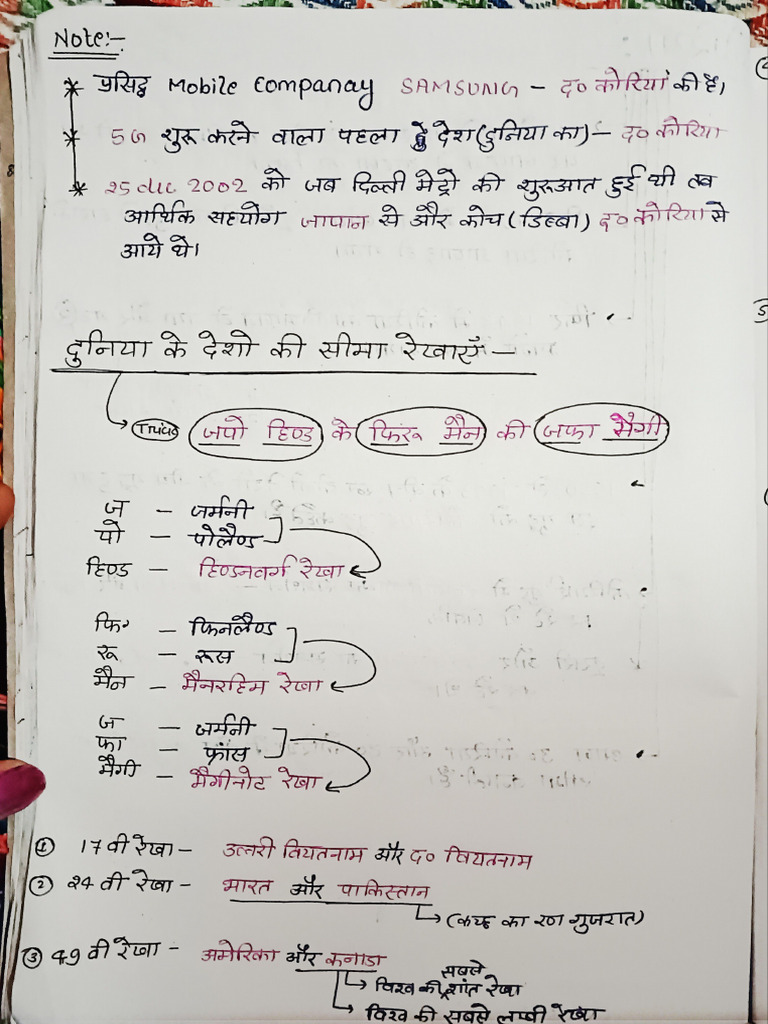 Note:-
* प्रसिद्ध Mobile Companay SAMSUNG - द० कोरिया की है।
* 5G शुरू करने वाला पहला देश (दुनिया का) - द० कोरिया
* 25 dec 2002 को जब दिल्ली मेट्रो की शुरूआत हुई थी तब
आर्थिक सहयोग जापान से और कोच (डिब्बा) द० कोरिया से
आये थे।
दुनिया के देशो की सीमा रेखाएँ :-
Trick जपो हिण्ड के फिरू मैन की जफा मैगी
ज - जर्मनी
पो - पोलैण्ड
हिण्ड - हिण्डनवर्ग रेखा
फि - फिनलैण्ड
रू - रूस
मैन - मैनरहिम रेखा
ज - जर्मनी
फा - फ्रांस
मैगी - मैगीनोट रेखा
① 17 वी रेखा - उत्तरी वियतनाम और द० वियतनाम
② 24 वी रेखा - भारत और पाकिस्तान
(कच्छ का रण गुजरात)
③ 49 वी रेखा - अमेरिका और कनाडा
विश्व की सबसे शांत रेखा
विश्व की सबसे लम्बी रेखा